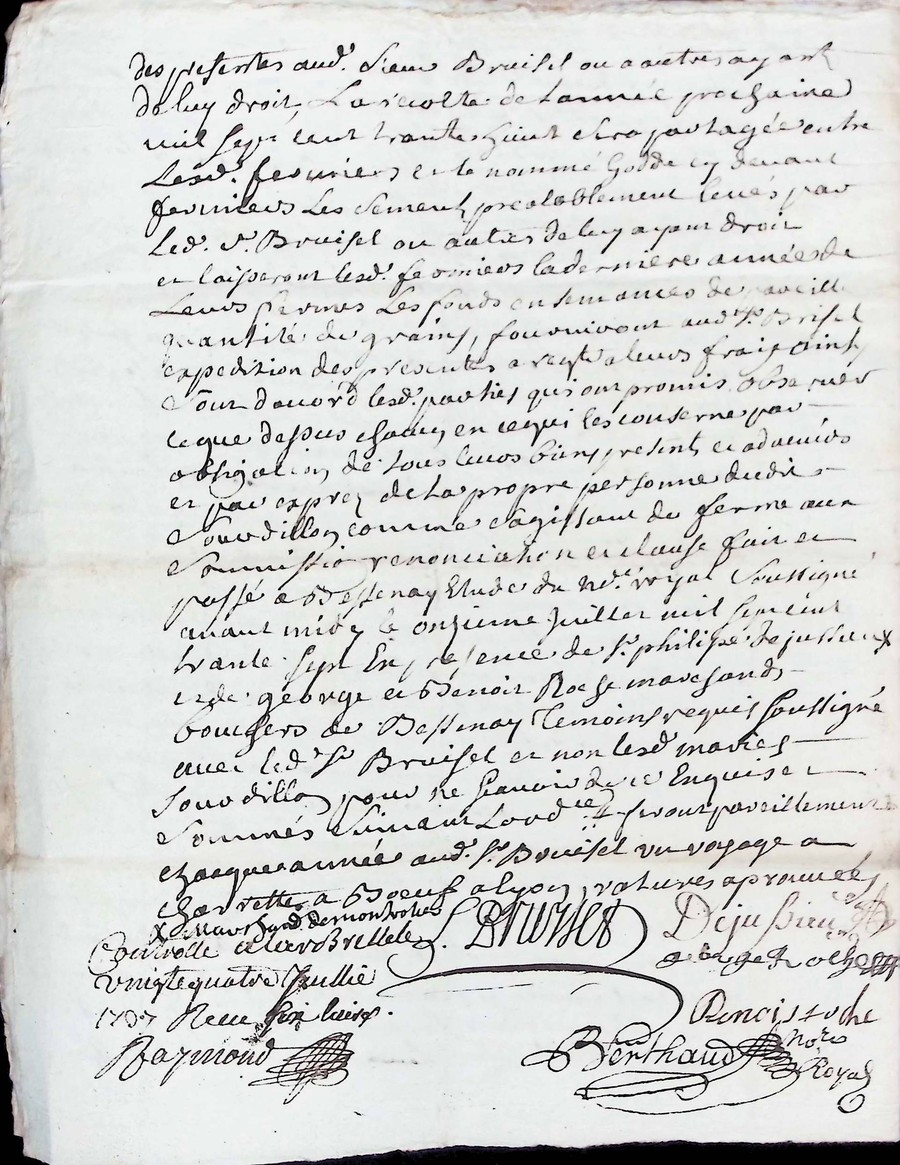 des presentes aud. Sieur Bruisel ou a autres ayant
de luy droit, La recolte de Lannée prochaine
mil sept cent trante huict sera partagée entre
Lesd. fermiers et le nommé Godde cy devant
fermiers Les semens prealablement levés par
Led. Sr. Bruisel ou autres de luy ayant droit
et laisseront lesd. fermiers la derniere année de
Leurs fermes Les fonds en semances de pareille
quantité de grains, fourniront aud. Sr. Brisel
expedition des presentes a leurs frais ainsy
Sont d'acord lesd. parties qui ont promis observer
ce que dessus chacun en ce qui les conserne par
obligation de tous leurs biens presents et advenirs
et par exprez de La propre personne dudit
Sourdillon comme s'agissant de ferme aux
Soumission renonciation et clause fait et
passé a Bessenay Etude du Nore. royal Soussigné
avant midy le onzieme Juillet mil sept cent
trante sept En presence de Sr. philipe Dejussieu x
et de george et Benoit Roche marchands
bouchers de Bessenay Temoins requis soussigné
avec led. Sr. Bruisel et non lesd. mariés
Sourdillon pour ne sçavoir de ce Enquis et
Sommés Suivant Lord.ce + feront pareillement
chacque année aud. Sr. Bruisel un voyage a
charrette a Boeuf a lyon, ratures aprouvées
x Marchand de montrotier
Controllé a Larbresle
vingte quatre Juillie
1737 Receu six livres.
Raymond
L. Bruissel
Dejussieu
george Roche
Benoist roche
Berthaud Nore
Royal